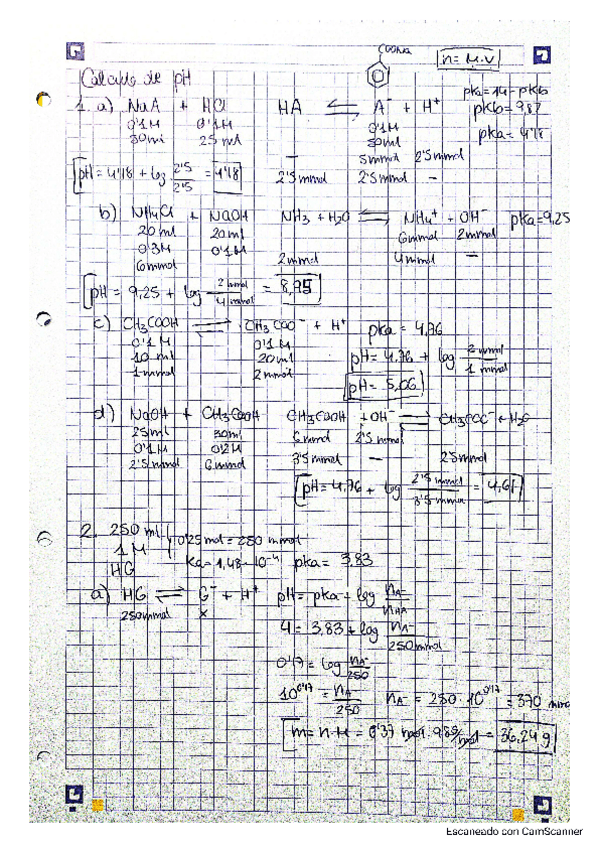 COONa
n = M·V
Cálculo de pH
pKa = 14 - pKb
pKb = 9,82
pKa = 4'18
1. a) NaA + HCl
0'1M 0'1M
30ml 25ml
HA ⇌ A⁻ + H⁺
0'1M
30ml
— 3mmol 2'5mmol
2'5mmol 2'5mmol —
pH = 4'18 + log 2'5/2'5 = 4'18
b) NH4Cl + NaOH
20ml 20ml
0'3M 0'1M
6mmol
NH3 + H2O ⇌ NH4⁺ + OH⁻ pKa = 9,25
6mmol 2mmol
2mmol 4mmol —
pH = 9,25 + log 2mmol/4mmol = 8,95
c) CH3COOH ⇌ CH3COO⁻ + H⁺ pKa = 4,76
0'1M 0'1M
10ml 20ml
1mmol 2mmol
pH = 4,76 + log 2mmol/1mmol
pH = 5,06
d) NaOH + CH3COOH
25ml 30ml
0'1M 0'2M
2'5mmol 6mmol
CH3COOH + OH⁻ ⇌ CH3COO⁻ + H2O
6mmol 2'5mmol
3'5mmol — 2'5mmol
pH = 4,76 + log 2'5mmol/3'5mmol = 4,61
2. 250 ml
1M
HG
0'25mol = 250 mmol
Ka = 1,48·10⁻⁴ pKa = 3,83
a) HG ⇌ G⁻ + H⁺
250mmol x
pH = pKa + log nA⁻/nHA
4 = 3,83 + log nA⁻/250mmol
0'17 = log nA⁻/250
10^0'17 = nA⁻/250 nA⁻ = 250·10^0'17 = 370
m = n·M = 0'37 = 36,24 g
Escaneado con CamScanner